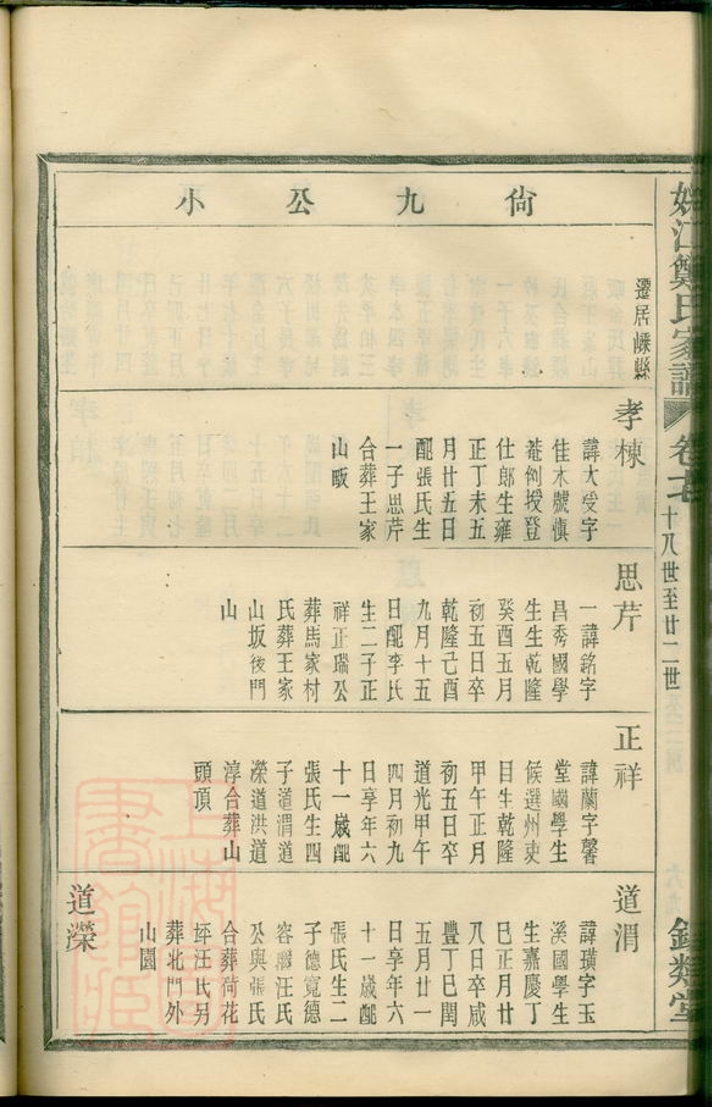 姚江鄭氏家譜
卷
十八世至廿二世
錫類堂
尙九公小
遷居嵊縣
孝棟
諱大受字
佳木號愼
菴例授登
仕郎生雍
正丁未五
月廿五日
配張氏生
一子思芹
合葬王家
山畈
思芹
一諱銘字
昌秀國學
生生乾隆
癸酉五月
初五日卒
乾隆己酉
九月十五
日配李氏
生二子正
祥正瑞公
葬馬家村
氏葬王家
山坂後門
山
正祥
諱蘭字馨
堂國學生
候選州吏
目生乾隆
甲午正月
初五日卒
道光甲午
四月初九
日享年六
十一歲配
張氏生四
子道渭道
濚道洪道
淳合葬山
頭頂
道渭
諱璜字玉
溪國學生
生嘉慶丁
巳正月廿
八日卒咸
豐丁巳閏
五月廿一
日享年六
十一歲配
張氏生二
子德寬德
容繼汪氏
公與張氏
合葬荷花
坪汪氏另
葬北門外
山園
道濚
上海圖書館藏